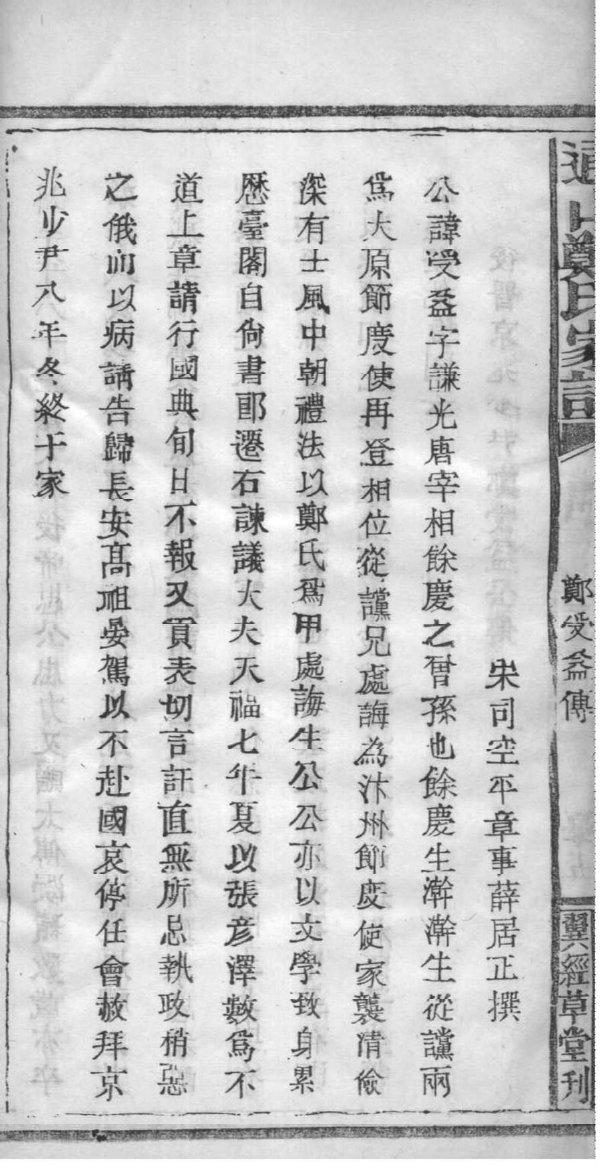 鄭氏家譜
鄭受益傳
翼經草堂刊
宋司空平章事薛居正撰
公諱受益字謙光唐宰相餘慶之曾孫也餘慶生澣澣生從讜兩
爲大原節度使再登相位從讜兄處誨為汴州節度使家襲清儉
深有士風中朝禮法以鄭氏爲甲處誨生公公亦以文學致身累
歷臺閣自尙書郎遷右諫議大夫天福七年夏以張彥澤數爲不
道上章請行國典旬日不報又貢表切言訐直無所忌執政稍惡
之俄而以病請告歸長安高祖晏駕以不赴國哀停任會赦拜京
兆少尹八年冬終于家